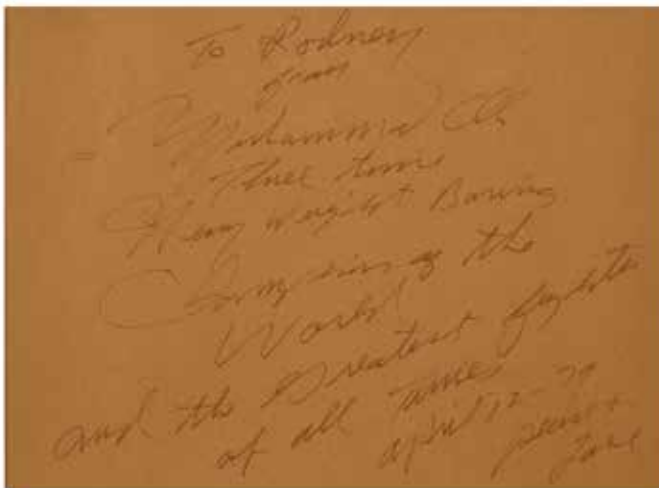 To Rodney
from
Muhammad Ali
Three time
Heavy weight Boxing
Champion of the
World
and the Greatest fighter
of all times
april 12-79
peace +
Love